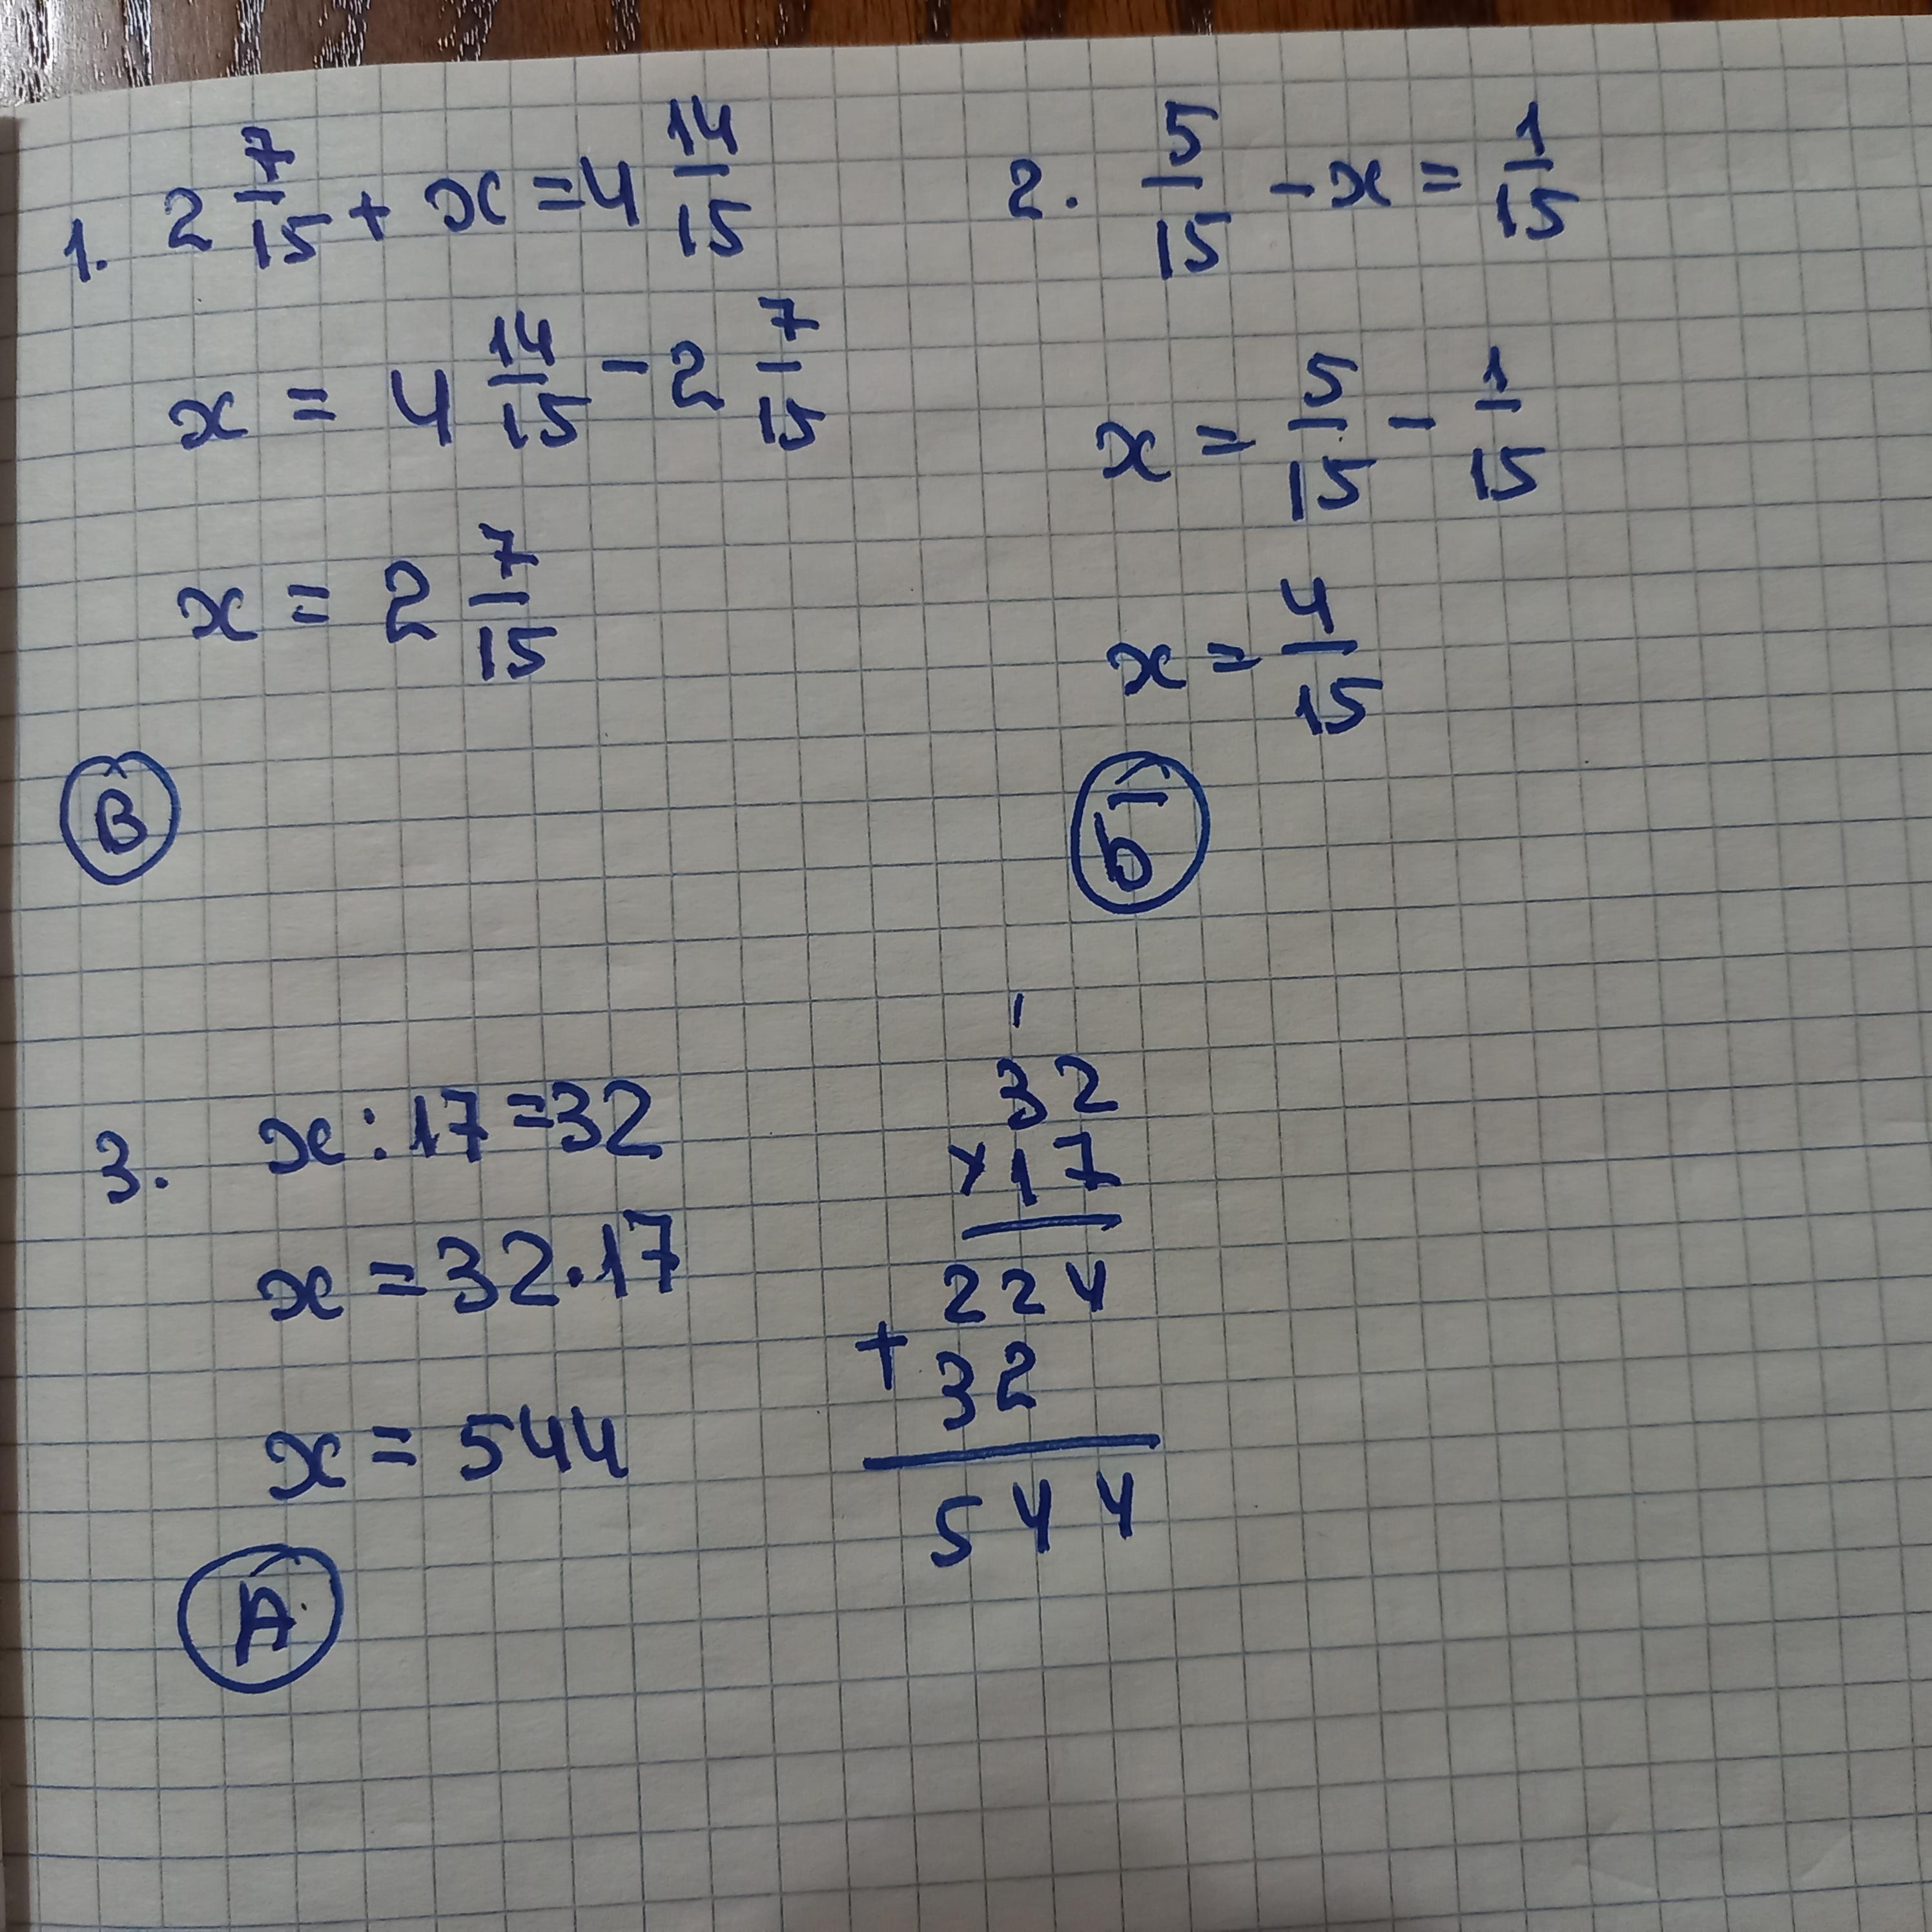 1. 2 7/15 + x = 4 14/15
x = 4 14/15 - 2 7/15
x = 2 7/15
В
2. 5/15 - x = 1/15
x = 5/15 - 1/15
x = 4/15
Б
3. x : 17 = 32
x = 32 · 17
x = 544
А
1
32
× 17
224
+ 32
544